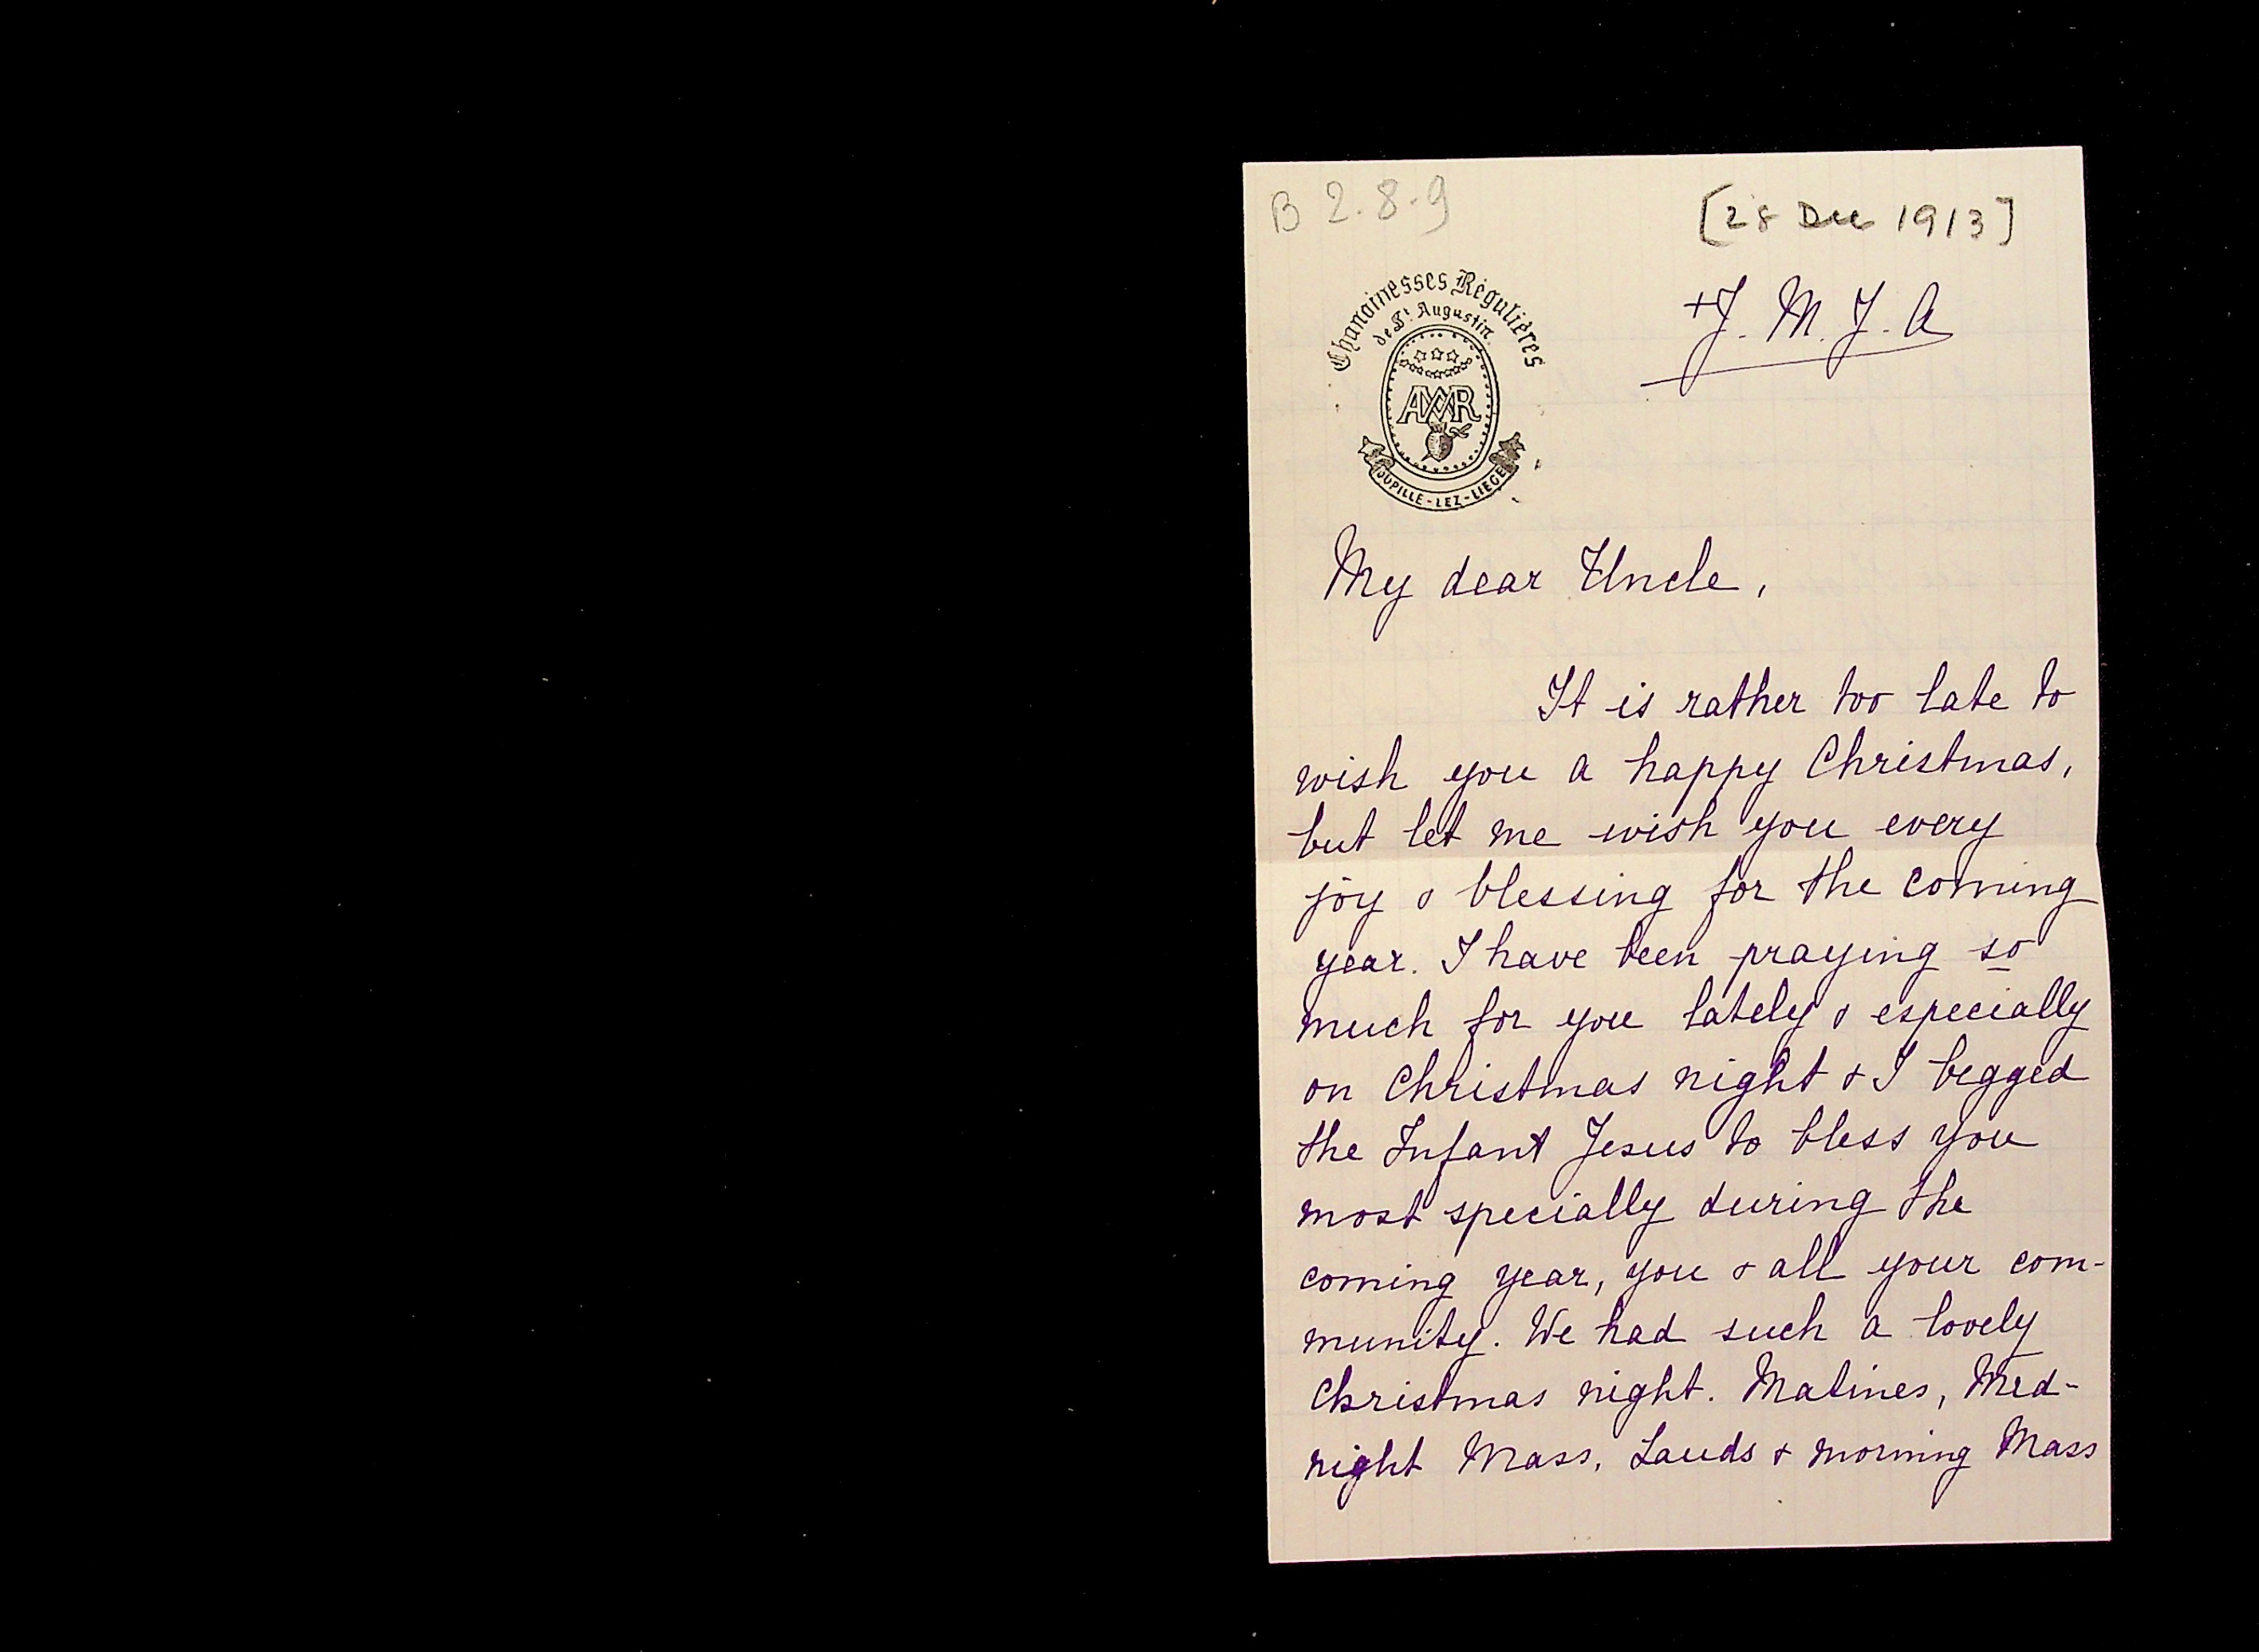 B 2.8.9
[28 Dec 1913]
Chanoinesses Régulières
de St. Augustin
+J. M. J. A
AMR
JUPILLE-LEZ-LIEGE
My dear Uncle,
It is rather too late to
wish you a happy Christmas,
but let me wish you every
joy & blessing for the coming
year. I have been praying so
much for you lately & especially
on Christmas night & I begged
the Infant Jesus to bless you
most specially during the
coming year, you & all your com-
munity. We had such a lovely
Christmas night. Matines, Mid-
night Mass, Lauds & morning Mass